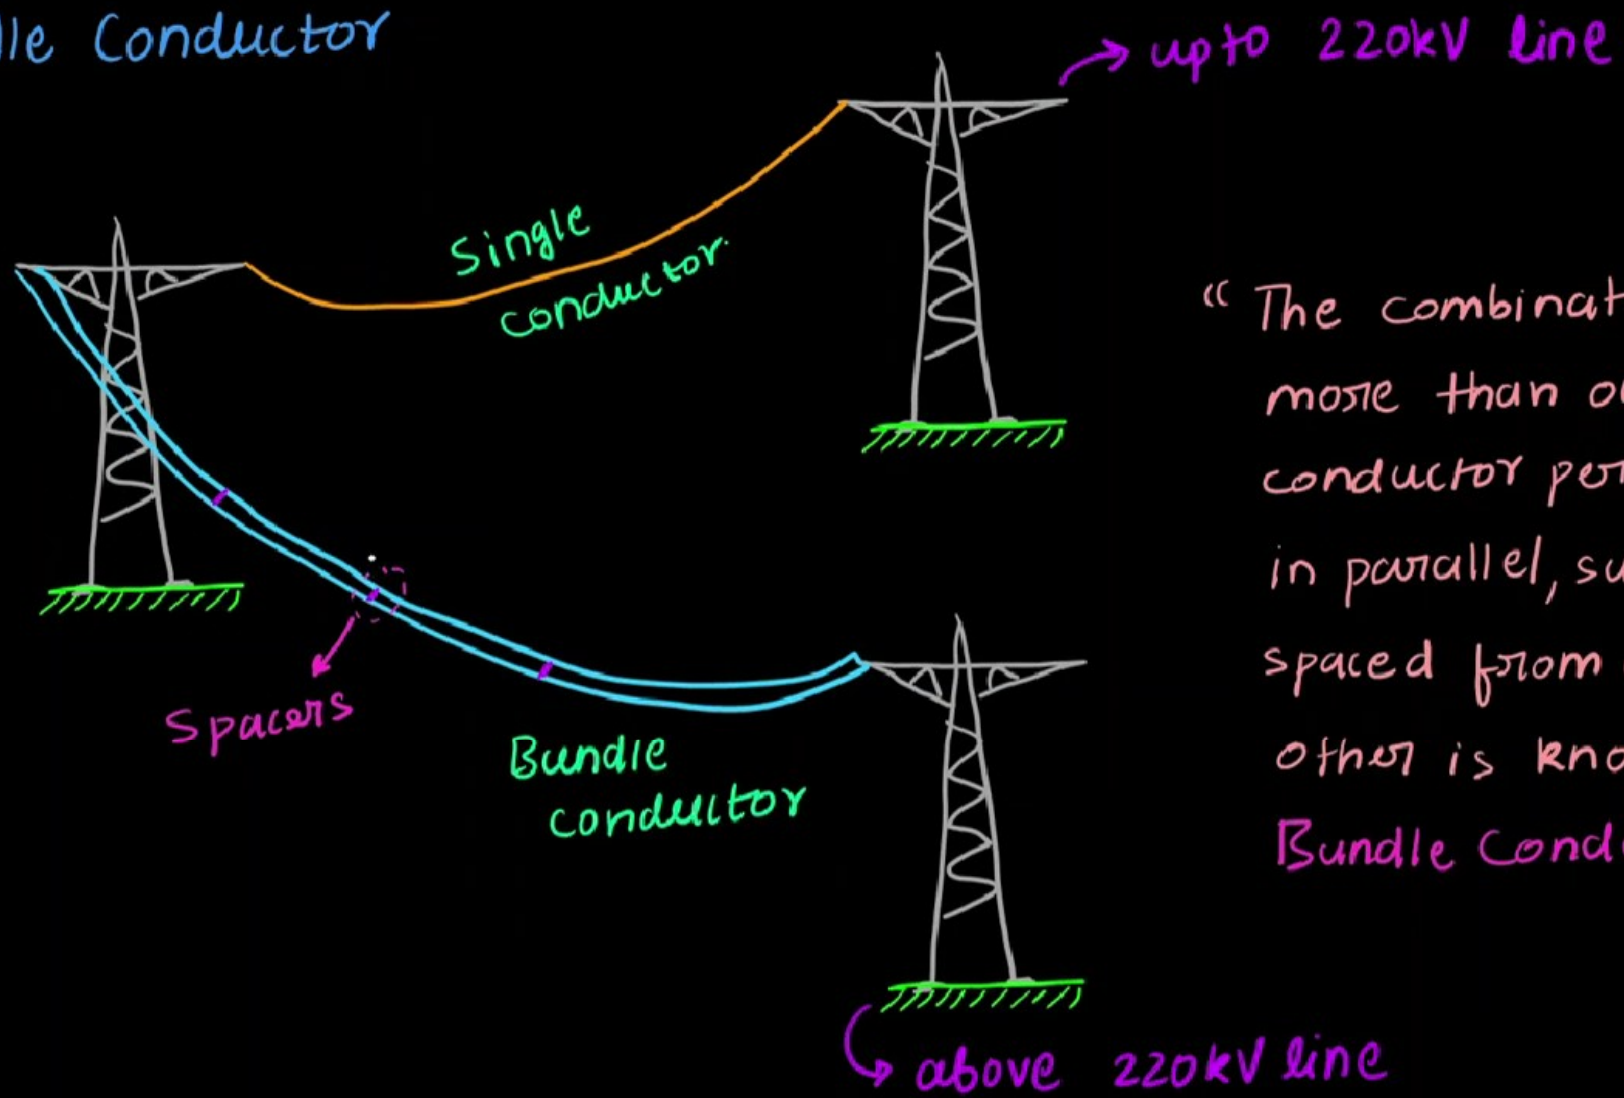 lle Conductor
upto 220kV line
Single
conductor.
Spacers
Bundle
conductor
above 220kV line
“ The combinat
more than o
conductor per
in parallel, su
spaced from
other is kno
Bundle Cond